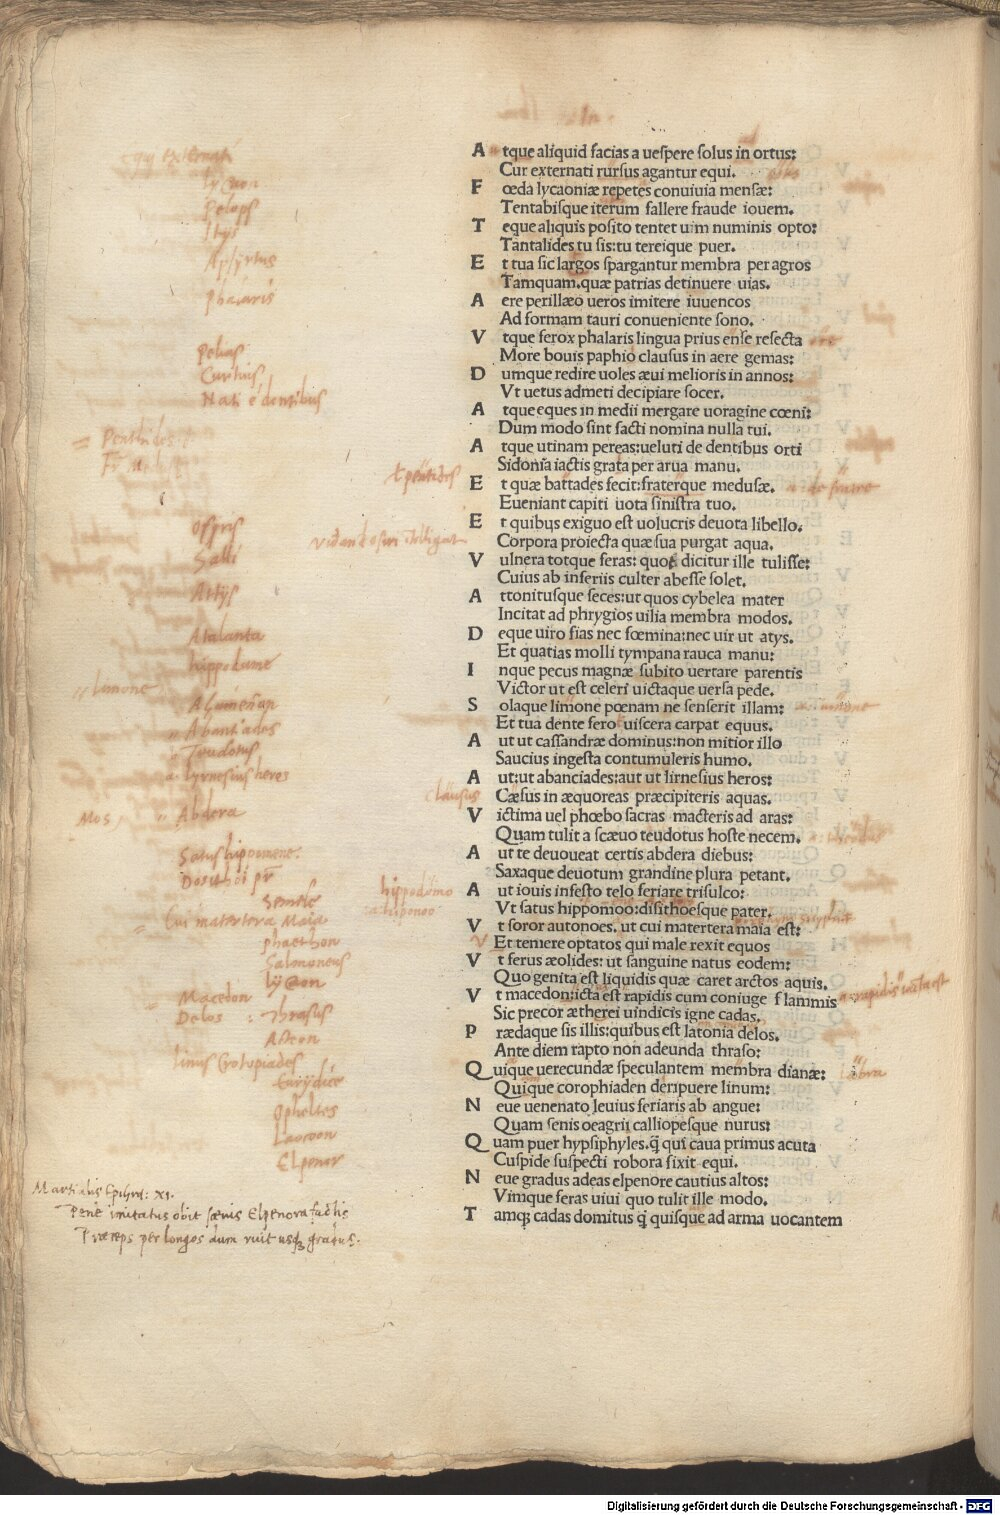 Atque aliquid facias a uespere solus in ortus:
Cur externati rursus agantur equi.
Fœda lycaoniæ repetes conuiuia mensæ:
Tentabisque iterum fallere fraude iouem.
Teque aliquis posito tentet uim numinis opto:
Tantalides tu sis: tu tereique puer.
Et tua sic largos spargantur membra per agros
Tamquam, quæ patrias detinuere uias.
Aere perillæo ueros imitere iuuencos
Ad formam tauri conueniente sono.
Vtque ferox phalaris lingua prius ense resecta
More bouis paphio clausus in aere gemas:
Dumque redire uoles æui melioris in annos:
Vt uetus admeti decipiare socer.
Atque eques in medii mergare uoragine cœni:
Dum modo sint facti nomina nulla tui.
Atque utinam pereas: ueluti de dentibus orti
Sidonia iactis grata per arua manu.
Et quæ battades fecit: fraterque medusæ.
Eueniant capiti uota sinistra tuo.
Et quibus exiguo est uolucris deuota libello.
Corpora proiecta quæ sua purgat aqua.
Vulnera totque feras: quot dicitur ille tulisse:
Cuius ab inferiis culter abesse solet.
Attonitusque seces: ut quos cybelea mater
Incitat ad phrygios uilia membra modos.
Deque uiro fias nec fœmina: nec uir ut atys.
Et quatias molli tympana rauca manu:
Inque pecus magnæ subito uertare parentis
Victor ut est celeri uictaque uersa pede.
Solaque limone pœnam ne senserit illam:
Et tua dente fero uiscera carpat equus.
Aut ut cassandræ dominus: non mitior illo
Saucius ingesta contumuleris humo.
Aut: ut abanciades: aut ut lirnesius heros:
Cæsus in æquoreas præcipiteris aquas.
Victima uel phœbo sacras macteris ad aras:
Quam tulit a scæuo teudotus hoste necem.
Aut te deuoueat certis abdera diebus:
Saxaque deuotum grandine plura petant.
Aut iouis infesto telo feriare trisulco:
Vt satus hippomoo: disithoesque pater.
Vt soror autonoes, ut cui matertera maia est:
Et temere optatos qui male rexit equos
Vt ferus æolides: ut sanguine natus eodem:
Quo genita est liquidis quæ caret arctos aquis.
Vt macedon: icta est rapidis cum coniuge flammis
Sic precor ætherei uindicis igne cadas.
Prædaque sis illis: quibus est latonia delos.
Ante diem rapto non adeunda thraso:
Quique uerecundæ speculantem membra dianæ:
Quique corophiaden deripuere linum:
Neue uenenato leuius feriaris ab angue:
Quam senis oeagri calliopesque nurus:
Quam puer hypsiphyles. q̃ qui caua primus acuta
Cuspide suspecti robora fixit equi.
Neue gradus adeas elpenore cautius altos:
Vimque feras uiui quo tulit ille modo.
Tamq; cadas domitus q̃ quisque ad arma uocantem
Pelops
Itys
Apsyrtus
phalaris
pelias
Curtius
Nati e dentibus
Penthides
Salli
Attys
Atalanta
hippodame
limone
Abantiades
Teudotus
Lyrnesius heros
clausus
Mos
Abdera
Satus hipomene
Dosithoi pr̃
hippodomo
Semele
Cui matertera Maia
phaethon
Salmoneus
lycaon
Macedon
Delos
Thrasus
Acteon
linus Crotopiades
Eurydice
Opheltes
Laocoon
Elpenor
rapidis icta est
Martialis Epigra: XI.
Pene imitatus obit sævis Elpenora
Præceps per longos dum ruit usq; gradus.
Digitalisierung gefördert durch die Deutsche Forschungsgemeinschaft - DFG